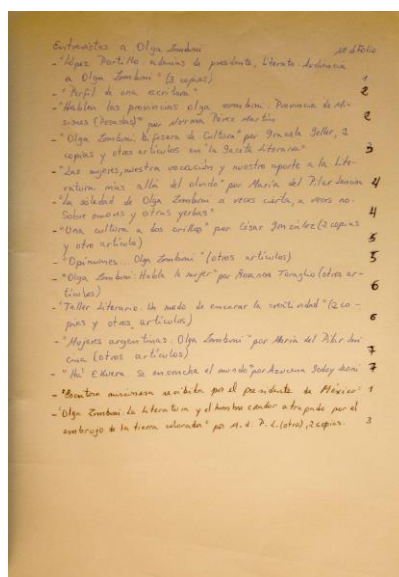 Entrevistas a Olga Zamboni Nº d Folio
- "López Portillo además de presidente, literato. Ardencia
a Olga Zamboni" (3 copias) 1
- "Perfil de una escritora" 2
- "Hablen las provincias olga zamboni. Provincia de Mi-
siones (Posadas)" por Norma Pérez Martín 2
- "Olga Zamboni: bifisera de Cultura" por Graciela Geller, 2
copias y otros artículos en "la Gaceta Literaria" 3
- "Las mujeres, nuestra vocación y nuestro aporte a la Lite-
ratura más allá del olvido" por María del Pilar 4
- "la soledad de Olga Zamboni a veces cierta, a veces no.
Sobre amores y otras yerbas" 4
- "Una cultura a dos orillas" por César González (2 copias
y otro artículo) 5
- "Opiniones... Olga Zamboni" (otros artículos) 5
- "Olga Zamboni: Habla la mujer" por Rosanna Toraglio (otros ar-
tículos) 6
- "Taller Literario. Un modo de encarar la creatividad" (2 co-
pias y otros artículos) 6
- "Mujeres argentinas: Olga Zamboni" por María del Pilar
(otros artículos) 7
- se ensancha el mundo" por Azucena Godoy 7
- "Escritora misionera recibida por el presidente de México" 1
- "Olga Zamboni. La literatura y el hombre atrapado por el
embrujo de la tierra colorada" por M. d. P. L. (otro), 2 copias. 3